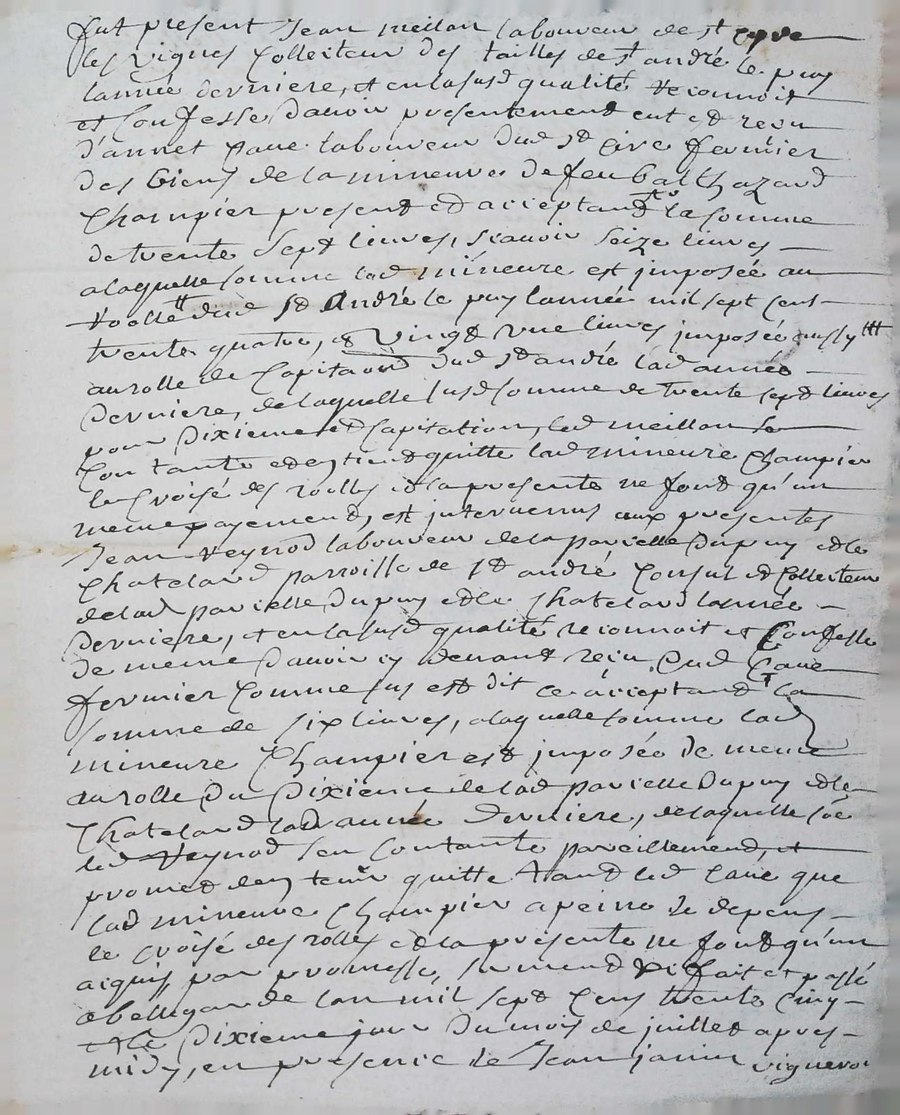 fut present Jean meillon laboureur de st cyre
les vignes Collecteur des tailles de st andré le puy
lannée derniere, et en la susd qualité reconnoit
et Confesse davoir presentement eut et reçu
d'annet laboureur dud st cire fermier
des biens de la mineure de feu balthazard
Champier present et acceptand la somme
de trente sept livres, scavoir seize livres
a laquelle somme lad mineure est jmposée au
rolle dud st André le puy lannée mil sept cens
trente quatre, et vingt une livres jmposée aussy
au rolle de Capitaon dud st andré lad année
derniere, de laquelle susd somme de trente sept livres
pour dixieme et Capitation, led meillon se
Contante et en tient quitte lad mineure Champier
le Croisé des rolles et la presente ne font qu'un
meme payement, est jntervenus aux presentes
Jean Veynod laboureur de la parcelle du puy et le
Chateland parroisse de st andré Consul et Collecteur
de lad parcelle du puy et le Chateland lannée
derniere, et en la susd qualité reconnoit et Confesse
de meme davoir cy devant reçu dud
fermier Comme sus est dit ce acceptand la
somme de six livres, a laquelle somme lad
mineure Champier est jmposée de meme
au rolle du dixieme de lad parcelle du puy et le
Chateland lad année derniere, de laquelle
led Veynod sen Contante pareillement, et
promet den tenir quitte tand led que
lad mineure Champier a peine de depens
le croisé des rolles et la presente ne font qu'un
acquis par promesse, serment fait et passé
a bellegarde lan mil sept Cens trente Cinq
et le dixieme jour du mois de juillet apres
midy, en presence de Jean janin vigneron